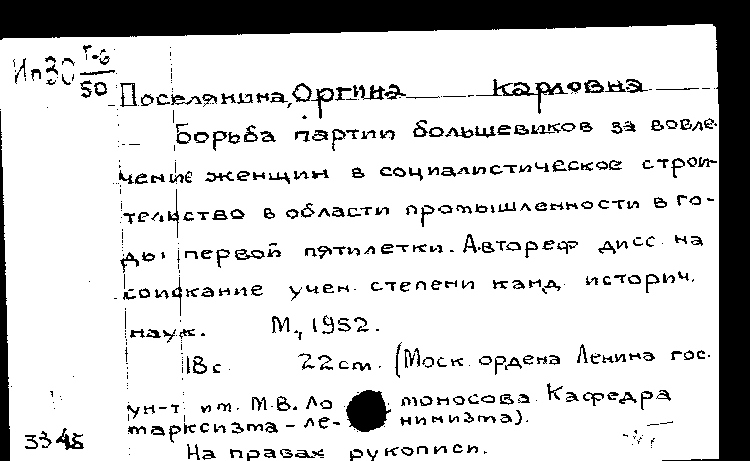 Ип30 Г-6
50
Поселянина, Оргина Карловна
Борьба партии большевиков за вовле-
чение женщин в социалистическое строи-
тельство в области промышленности в го-
ды первой пятилетки. Автореф дисс. на
соискание учен. степени канд. историч.
наук. М., 1952.
18 с. 22 cm. (Моск. ордена Ленина гос.
ун-т им. М.В. Ломоносова. Кафедра
марксизма-ленинизма).
На правах рукописи.
3345